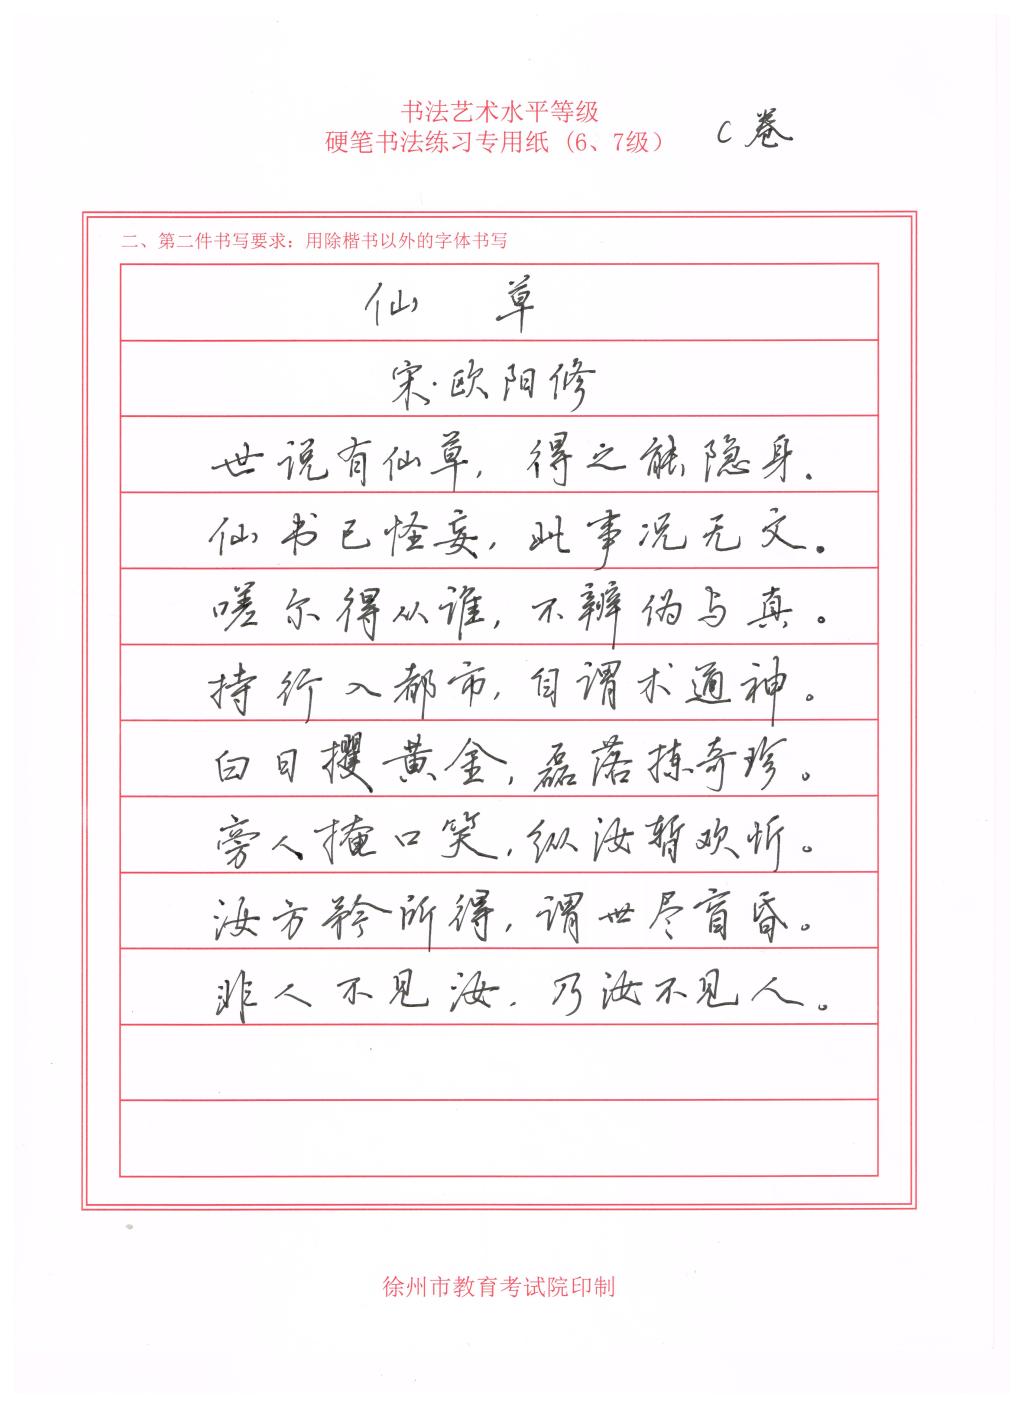 书法艺术水平等级
硬笔书法练习专用纸（6、7级）
C卷
二、第二件书写要求：用除楷书以外的字体书写
仙 草
宋·欧阳修
世说有仙草，得之能隐身.
仙书已怪妄，此事况无文。
嗟尔得从谁，不辨伪与真。
持行入都市，自谓术通神。
白日攫黄金，磊落拣奇珍。
旁人掩口笑，纵汝暂欢忻。
汝方矜所得，谓世尽盲昏。
非人不见汝，乃汝不见人。
徐州市教育考试院印制